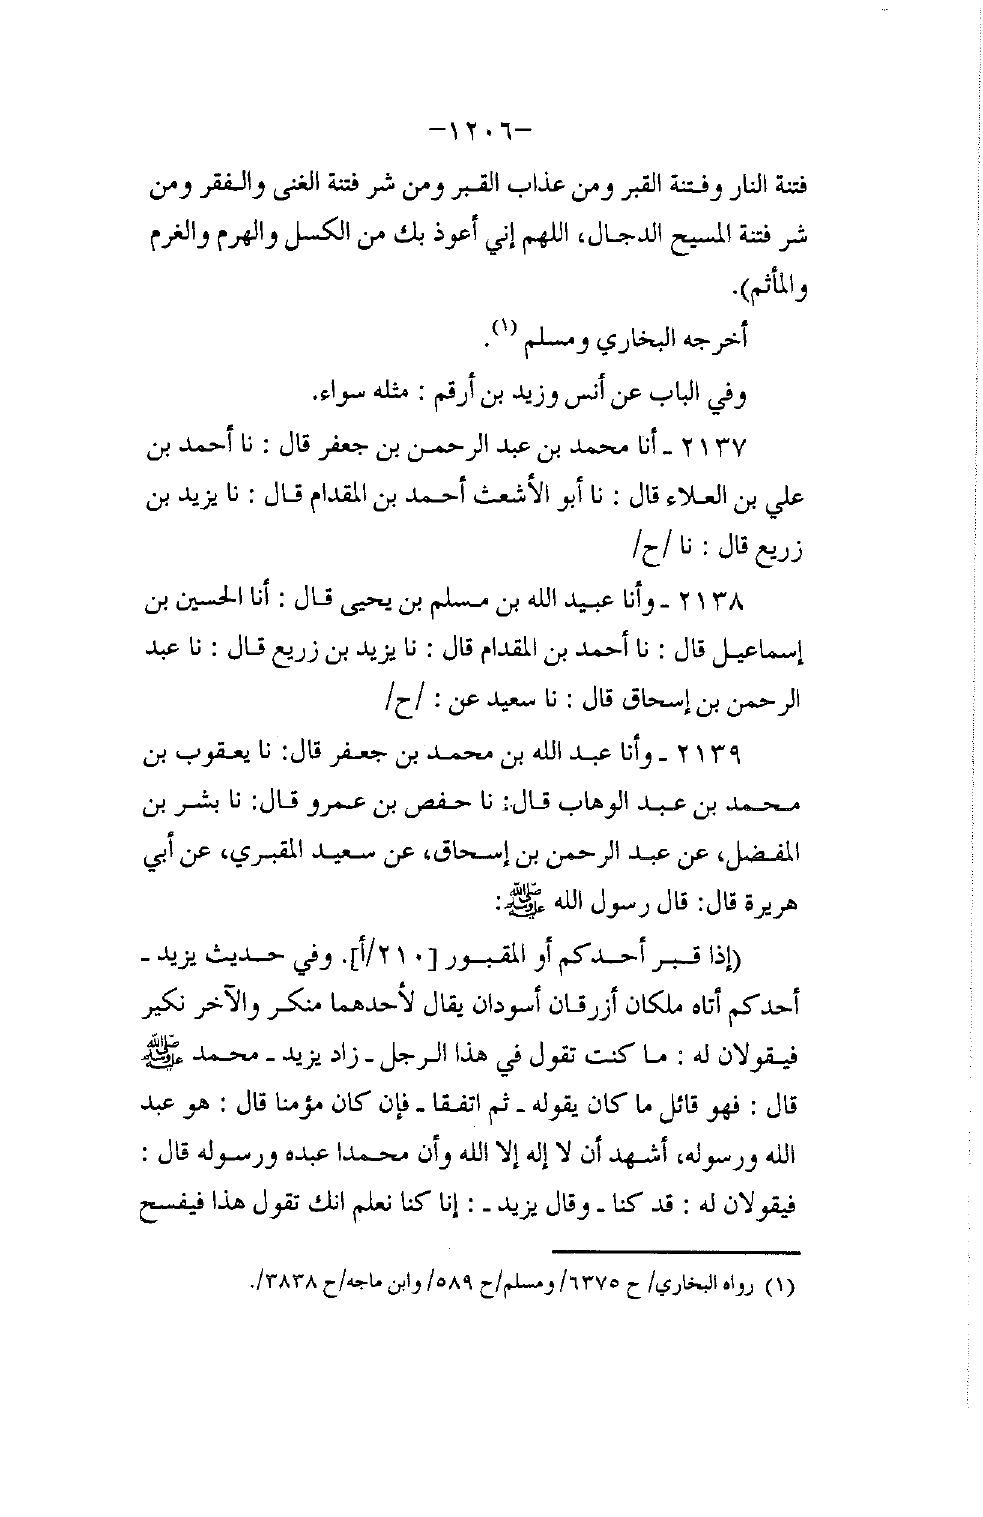 -١٢٠٦-
فتنة النار وفتنة القبر ومن عذاب القبر ومن شر فتنة الغنى والفقر ومن
شر فتنة المسيح الدجال، اللهم إني أعوذ بك من الكسل والهرم والغرم
والمأثم).
أخرجه البخاري ومسلم (١).
وفي الباب عن أنس وزيد بن أرقم : مثله سواء.
٢١٣٧ ـ أنا محمد بن عبد الرحمن بن جعفر قال : نا أحمد بن
علي بن العلاء قال : نا أبو الأشعث أحمد بن المقدام قال : نا يزيد بن
زريع قال : نا /ح/
٢١٣٨ ـ وأنا عبيد الله بن مسلم بن يحيى قال : أنا الحسين بن
إسماعيل قال : نا أحمد بن المقدام قال : نا يزيد بن زريع قال : نا عبد
الرحمن بن إسحاق قال : نا سعيد عن : /ح/
٢١٣٩ ـ وأنا عبد الله بن محمد بن جعفر قال: نا يعقوب بن
محمد بن عبد الوهاب قال: نا حفص بن عمرو قال: نا بشر بن
المفضل، عن عبد الرحمن بن إسحاق، عن سعيد المقبري، عن أبي
هريرة قال: قال رسول الله ﷺ:
(إذا قبر أحدكم أو المقبور [٢١٠/أ]. وفي حديث يزيد ـ
أحدكم أتاه ملكان أزرقان أسودان يقال لأحدهما منكر والآخر نكير
فيقولان له : ما كنت تقول في هذا الرجل ـ زاد يزيد ـ محمد ﷺ
قال : فهو قائل ما كان يقوله ـ ثم اتفقا ـ فإن كان مؤمنا قال : هو عبد
الله ورسوله، أشهد أن لا إله إلا الله وأن محمدا عبده ورسوله قال :
فيقولان له : قد كنا ـ وقال يزيد ـ : إنا كنا نعلم انك تقول هذا فيفسح
(١) رواه البخاري/ ح ٦٣٧٥/ ومسلم/ح ٥٨٩/ وابن ماجه/ح ٣٨٣٨/.